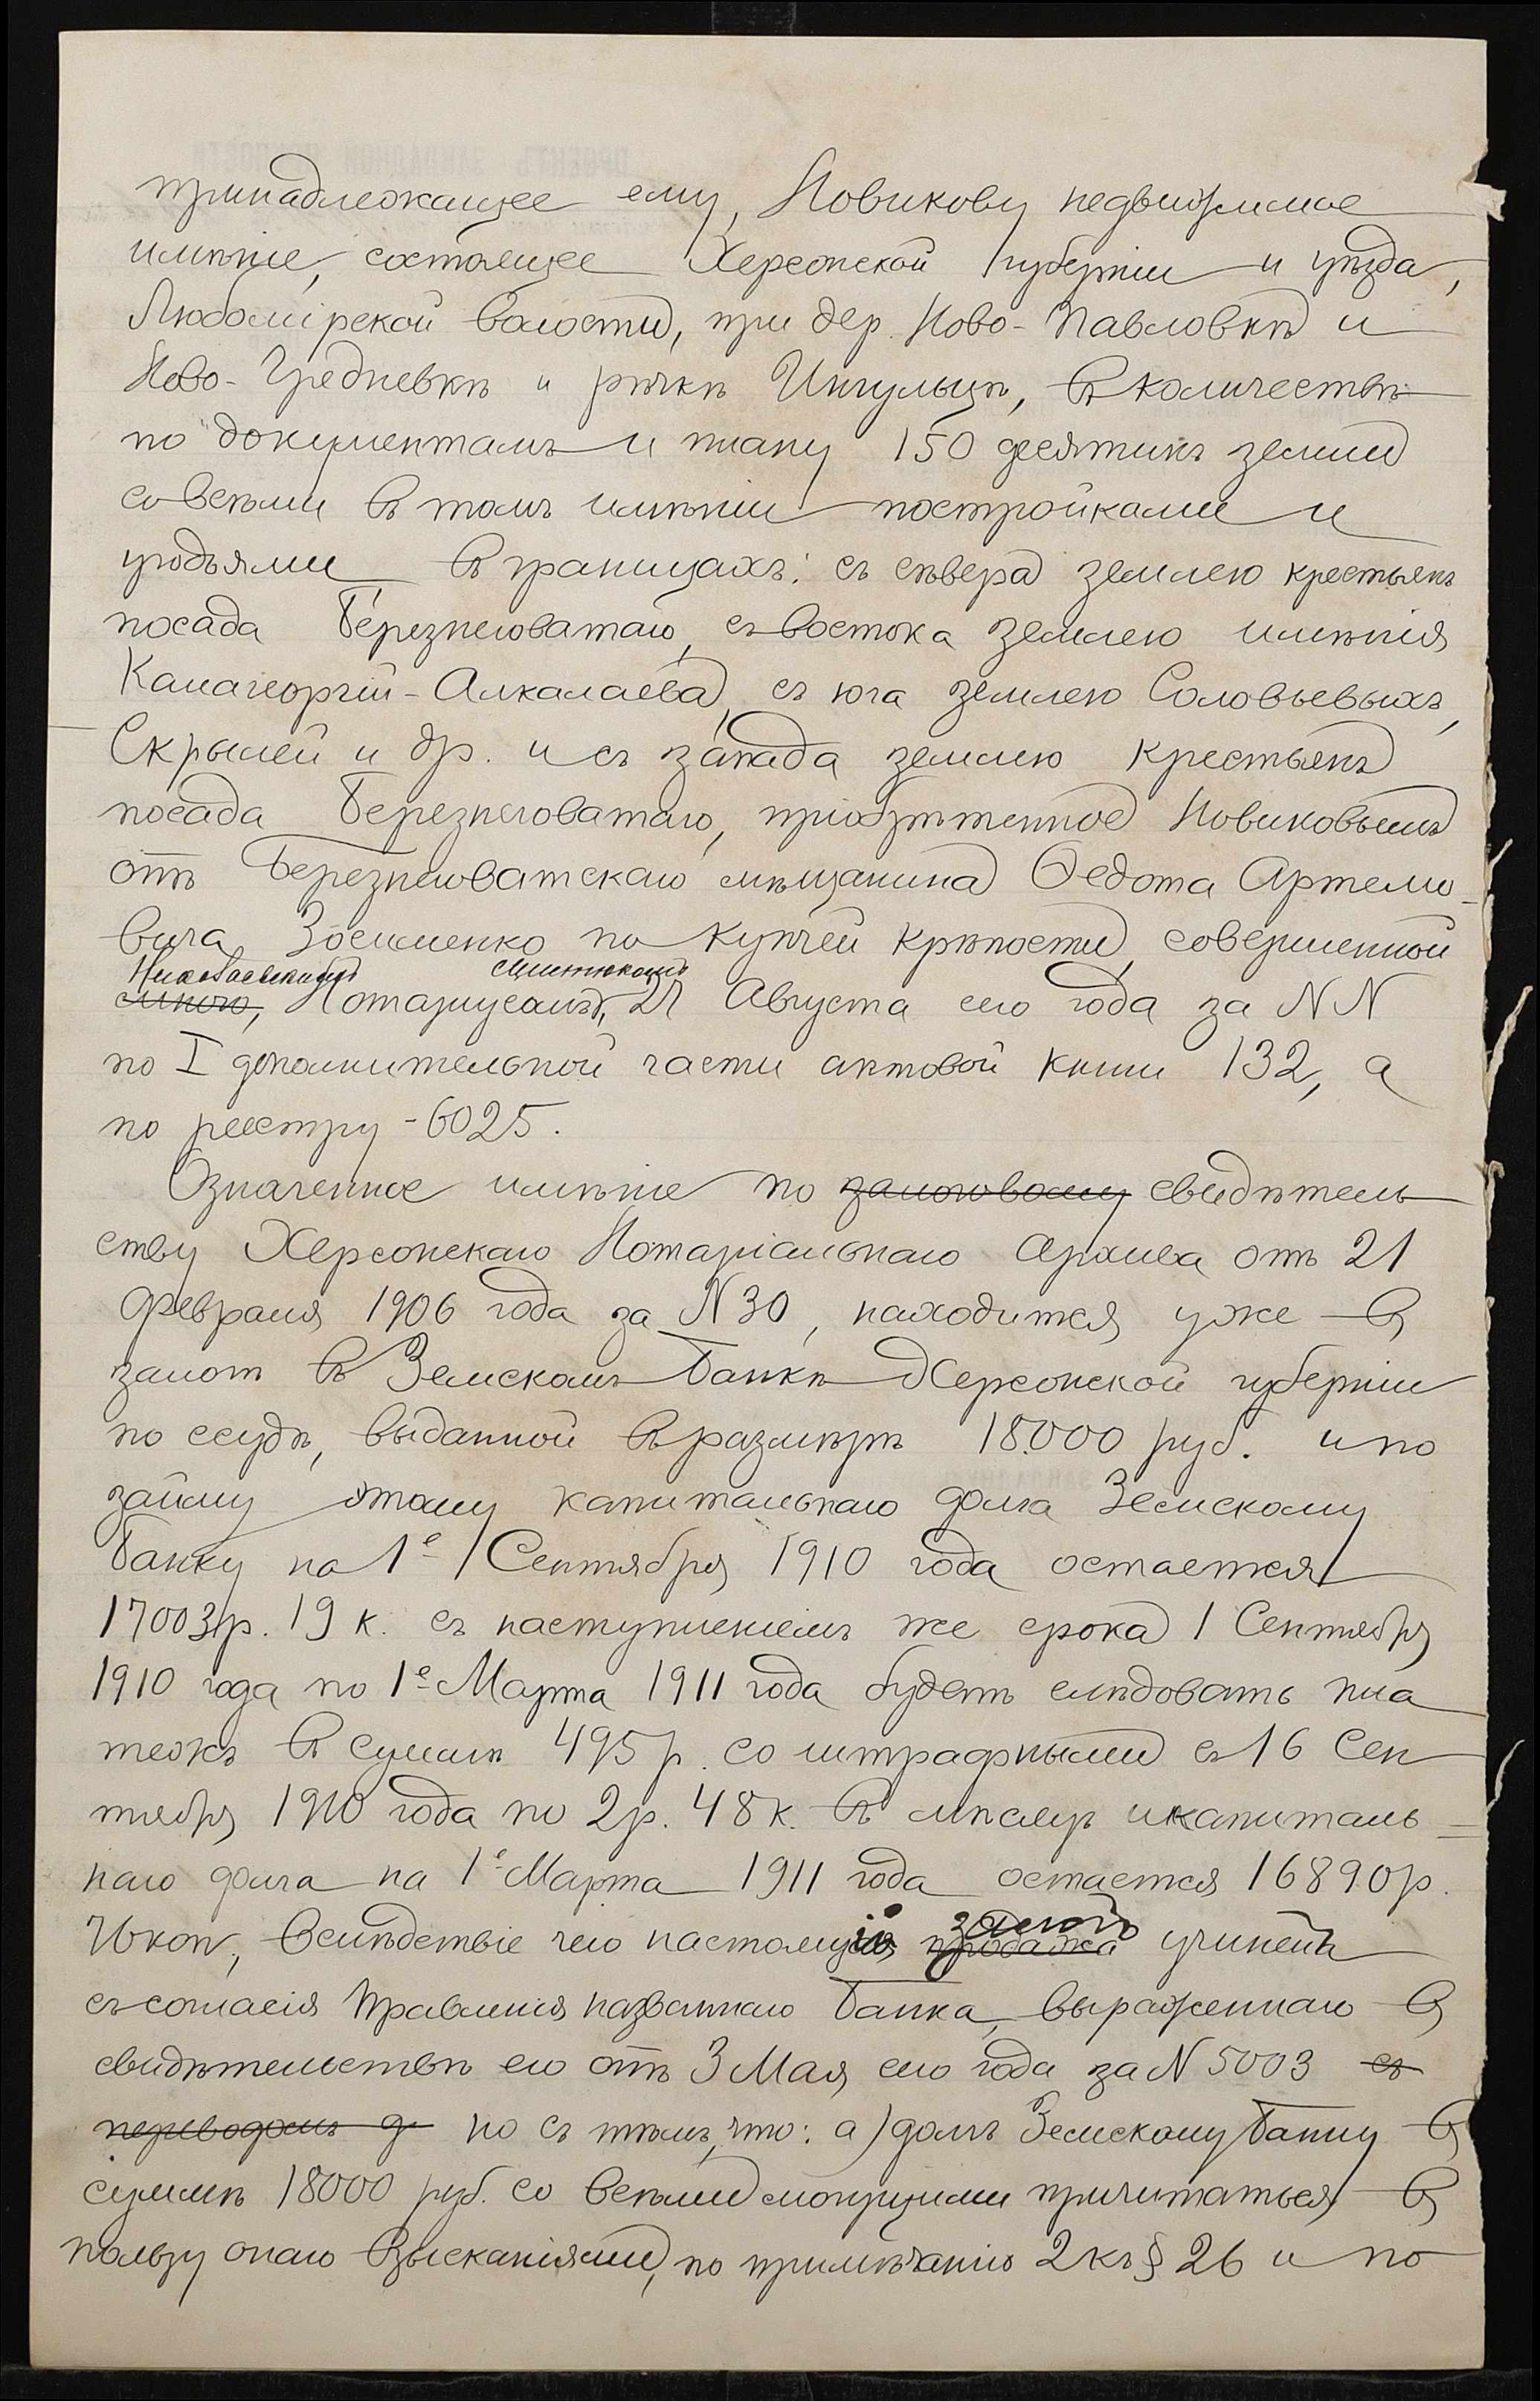 принадлежащее ему, Новикову недвижимое
имѣніе, состоящее Херсонской губерніи и уѣзда,
Любомірской волости, при дер. Ново-Павловкѣ и
Ново-Гредневкѣ и рѣчкѣ Ингульцѣ, въ количествѣ
по документамъ и плану 150 десятинъ земли
со всѣми въ томъ имѣніи постройками и
угодьями въ границахъ: съ сѣвера землею крестьянъ
посада Березнеговатаго, съ востока землею имѣнія
Канагеоргій-Алкалаева, съ юга землею Соловьевыхъ,
Скрылей и др. и съ запада землею крестьянъ
посада Березнеговатаго, пріобрѣтенное Новиковымъ
отъ Березнеговатскаго мѣщанина Ѳедота Артемо-
вича Зосименко по купчей крѣпости, совершенной
Николаевскимъ
мною, Нотаріусомъ, 27 Августа сего года за NN
по I дополнительной части актовой книги 132, а
по реестру - 6025.
Означенное имѣніе по залоговому свидѣтель
ству Херсонскаго Нотаріальнаго Архива отъ 21
Февраля 1906 года за N 30, находится уже въ
залогѣ въ Земскомъ Банкѣ Херсонской губерніи
по ссудѣ, выданной въ размѣрѣ 18.000 руб. и по
займу этому капитальнаго долга Земскому
Банку на 1е Сентября 1910 года остается
17003 р. 19 к. съ наступленіемъ же срока 1 Сентября
1910 года по 1е Марта 1911 года будетъ слѣдовать пла
тежъ въ суммѣ 495 р. со штрафными съ 16 Сен
тября 1910 года по 2 р. 48 к. въ мѣсяцъ и капиталь-
наго долга на 1е Марта 1911 года остается 16890 р.
коп, вслѣдствіе чего настоящій залогъ продажа учиненъ
съ согласія Правленія названнаго Банка, выраженнаго въ
свидѣтельствѣ его отъ 3 Мая сего года за N 5003 съ
переводомъ д но съ тѣмъ, что: а) долгъ Земскому Банку въ
суммѣ 18000 руб. со всѣми могущими причитаться въ
пользу онаго взысканіями, по примѣчанію 2 къ § 26 и по